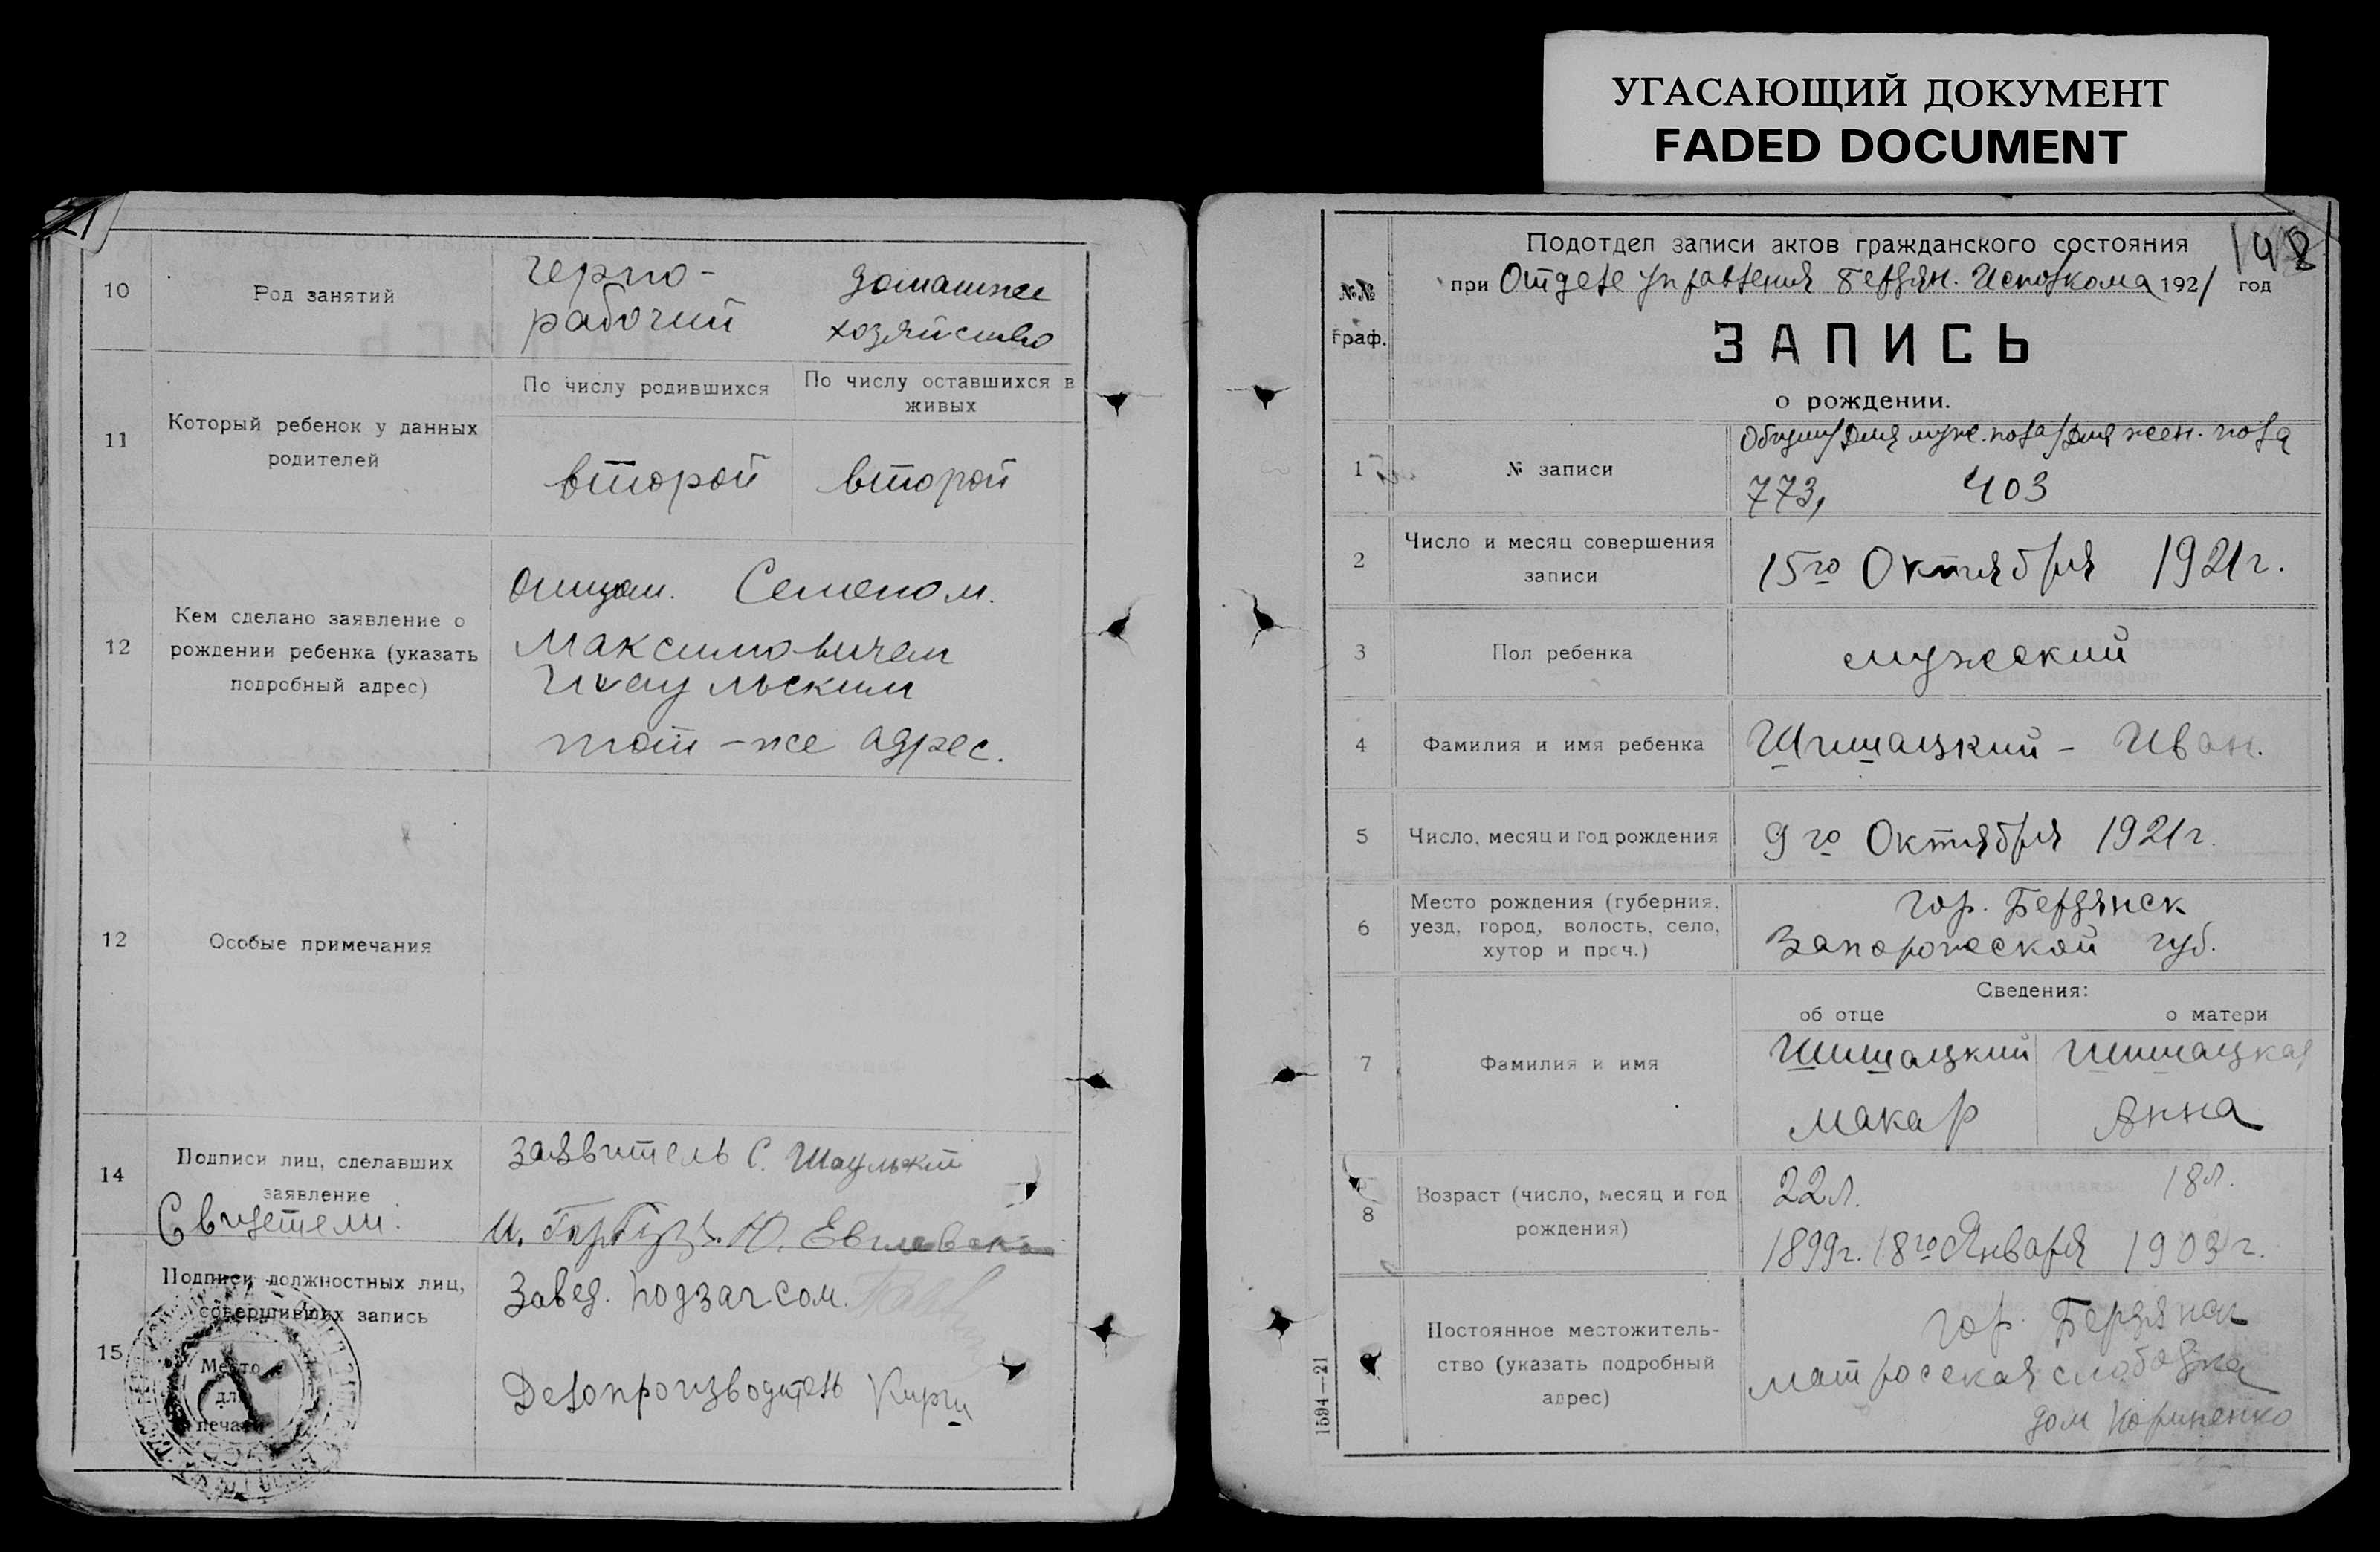 УГАСАЮЩИЙ ДОКУМЕНТ
FADED DOCUMENT
10
Род занятий
черно-
рабочий
домашнее
хозяйство
11
Который ребенок у данных
родителей
По числу родившихся
По числу оставшихся в
живых
второй
второй
12
Кем сделано заявление о
рождении ребенка (указать
подробный адрес)
отцом. Семеном.
Максимовичем
Шаульским
тот-же адрес.
12
Особые примечания
14
Подписи лиц, сделавших
заявление
Свидетели:
заявитель С. Шаульский
И. Гарбуз. Ю.
15
Подписи должностных лиц,
совершивших запись
Место
для
печати
Завед. подзагсом.
Делопроизводитель
148
№№
граф.
Подотдел записи актов гражданского состояния
при Отделе Управления Бердян. Исполкома 1921 год
ЗАПИСЬ
о рождении.
1
№ записи
Общий/для муж. пола/для жен. пола
773, 403
2
Число и месяц совершения
записи
15го Октября 1921г.
3
Пол ребенка
мужской
4
Фамилия и имя ребенка
Шишацкий - Иван.
5
Число, месяц и год рождения
9го Октября 1921г.
6
Место рождения (губерния,
уезд, город, волость, село,
хутор и проч.)
гор. Бердянск
Запорожской губ.
Сведения:
об отце
о матери
7
Фамилия и имя
Шишацкий
Макар
Шишацкая
Анна
8
Возраст (число, месяц и год
рождения)
22л. 18л.
1899г. 18го Января 1903г.
Постоянное местожитель-
ство (указать подробный
адрес)
гор. Бердянск
матросская слободка
дом
1594—21